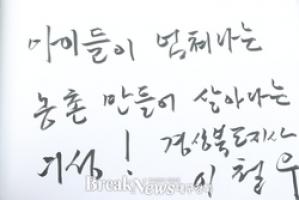 아이들이 넘쳐나는
농촌 만들어 살아나는
의성! 경상북도지사
이철우
BreakNews